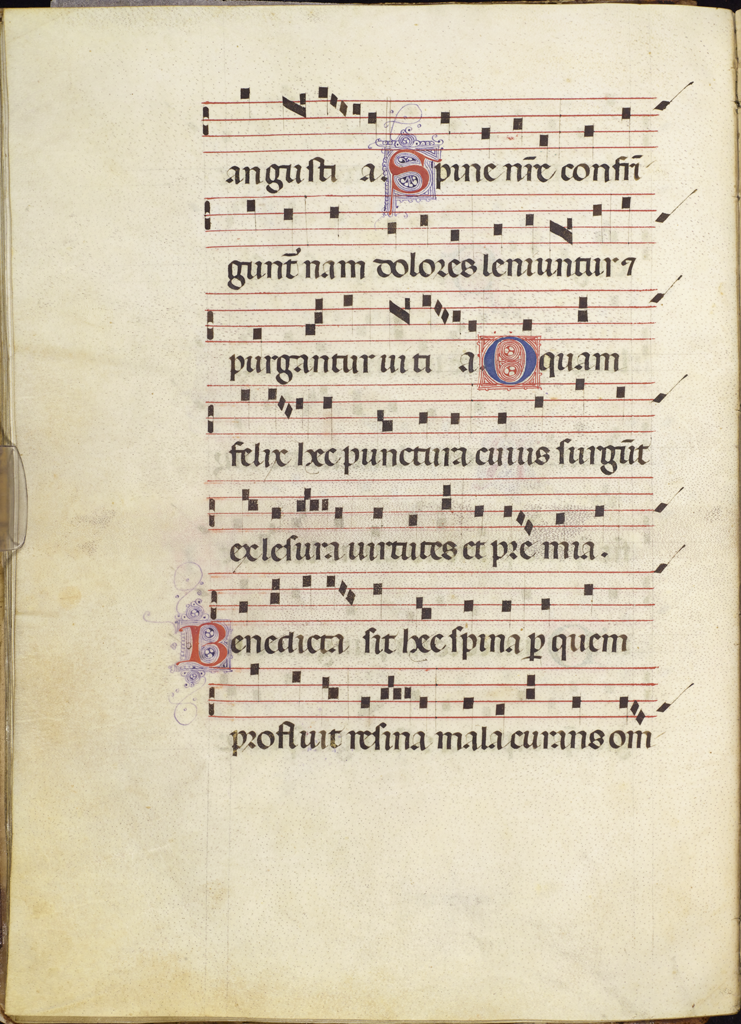 angusti a. Spine nr̄e confri̅
gunt̄ nam dolores leniuntur ⁊
purgantur uiti a. O quam
felix hec punctura cuius surgūt
ex lesura uirtutes et pre mia.
Benedicta sit hec spina ꝑ quem
profluit resina mala curans om̄